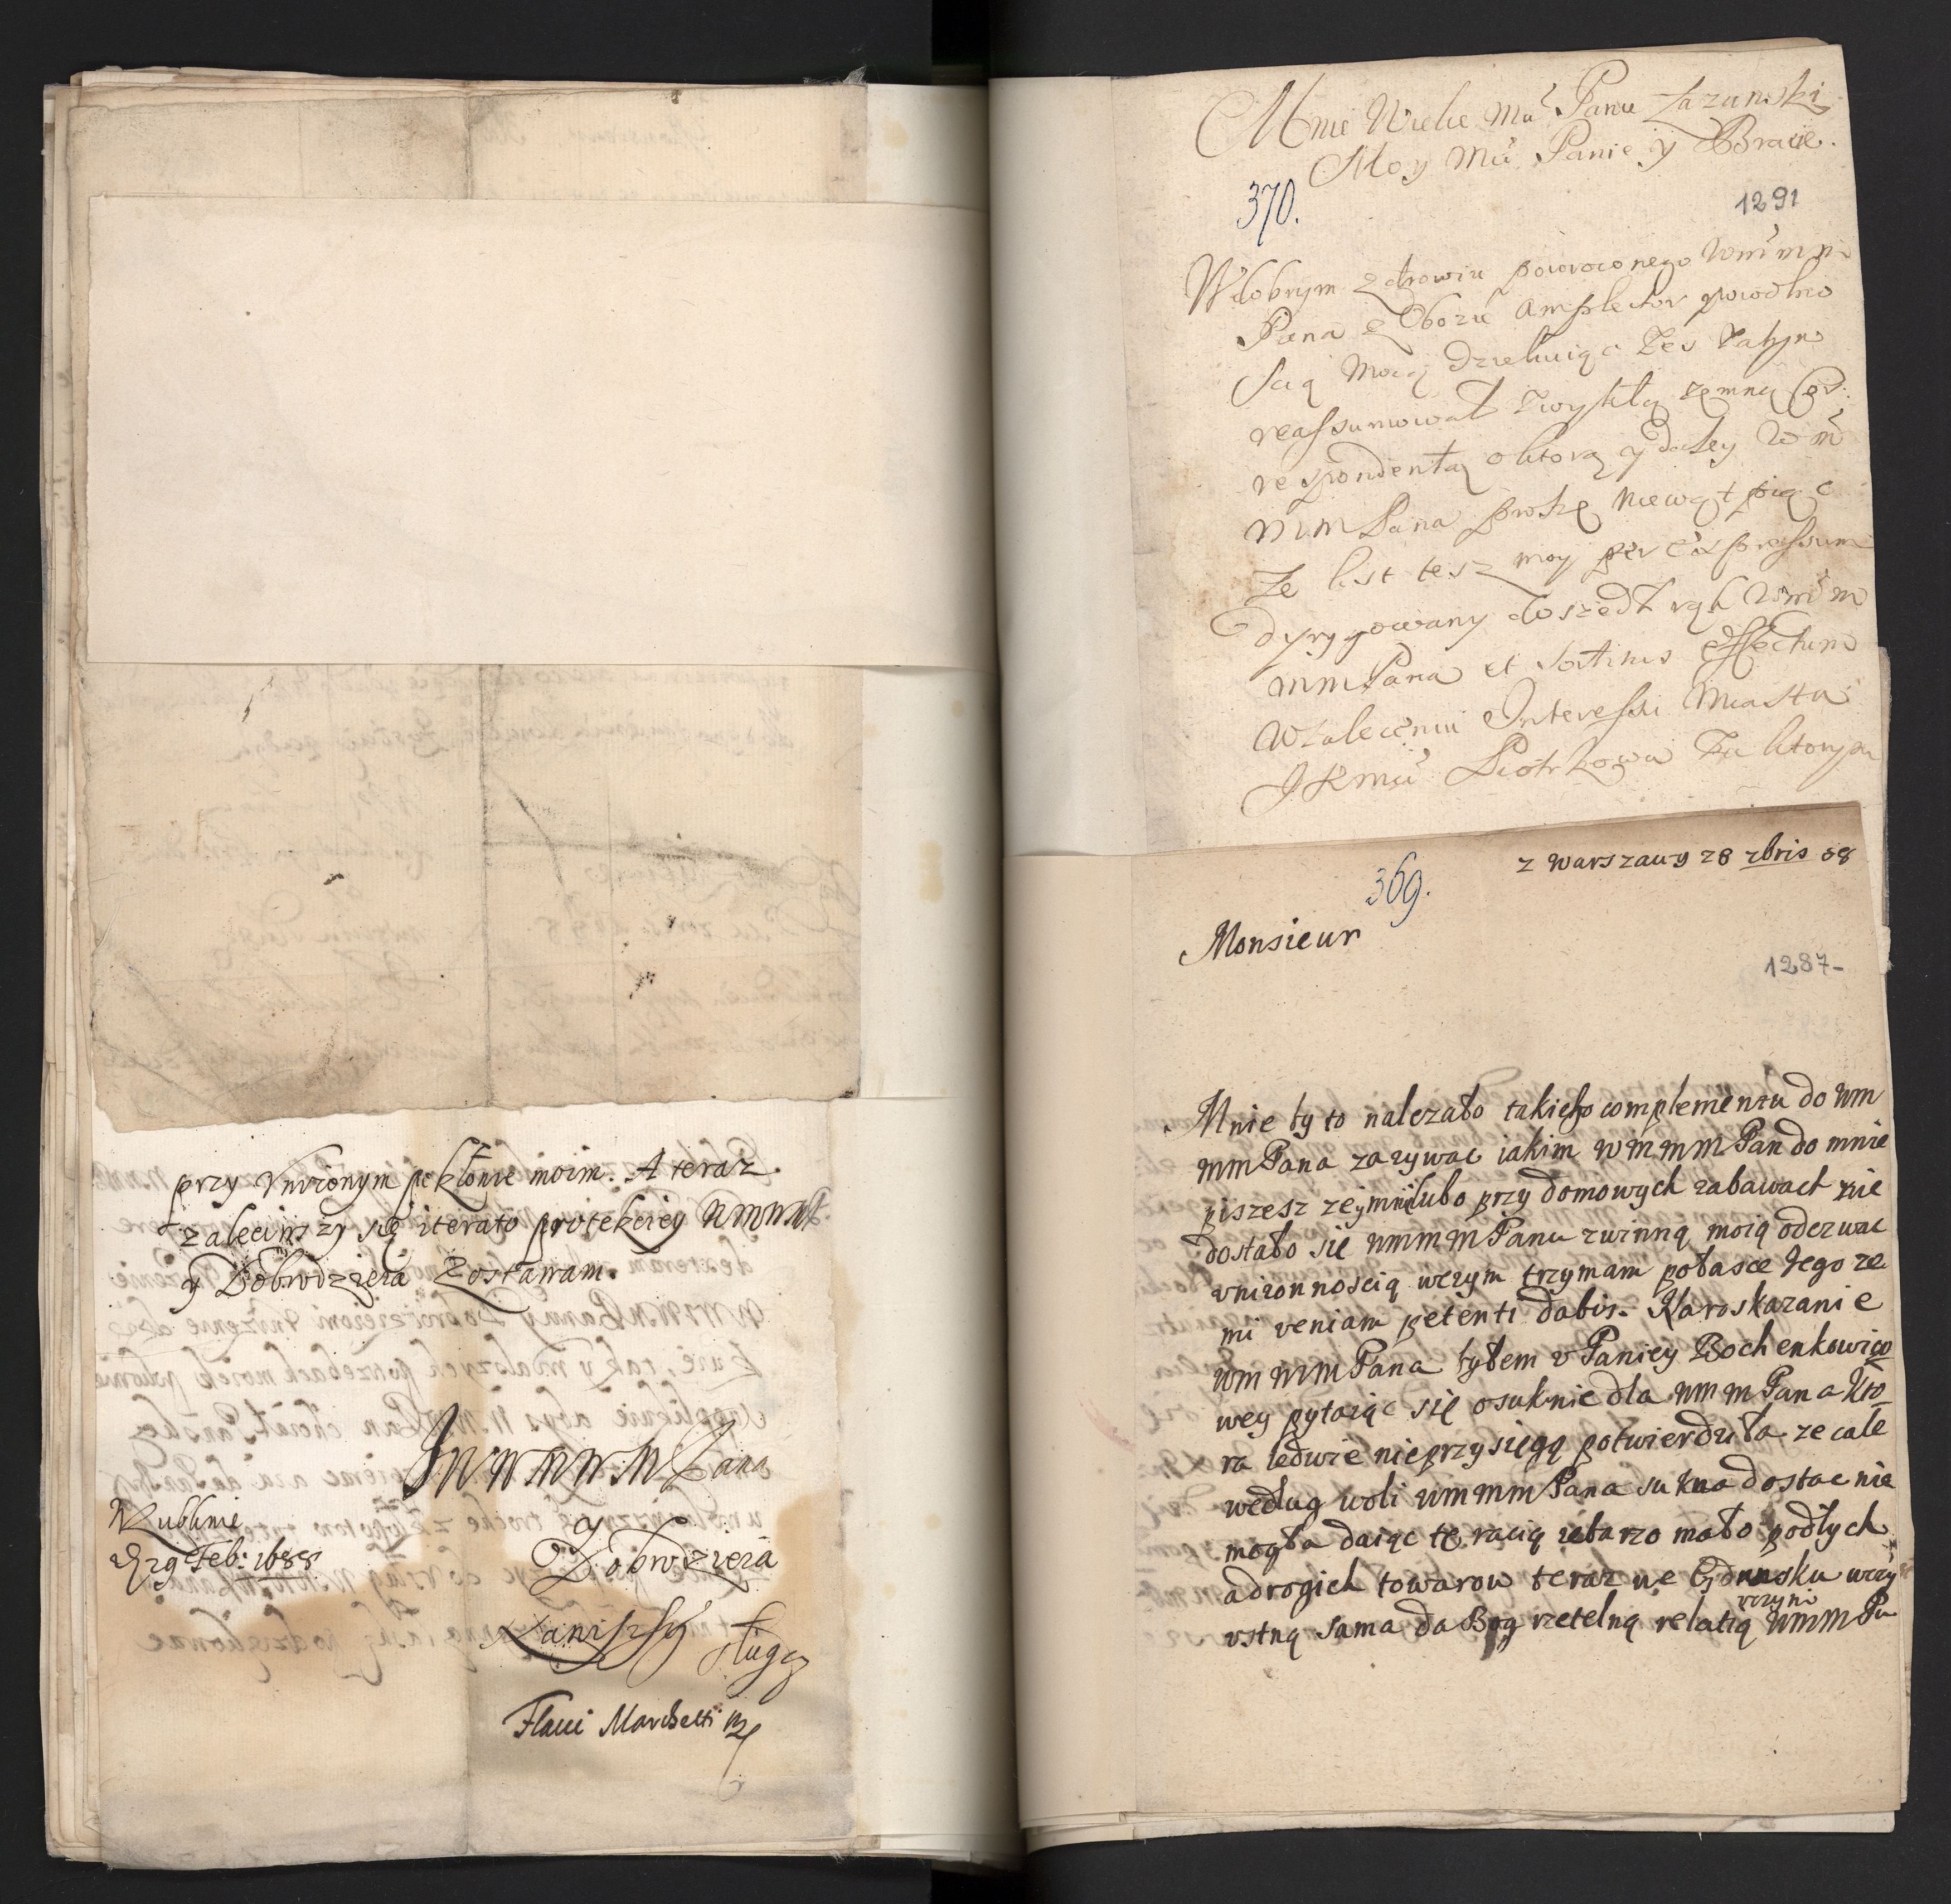 przy Vnizonym pokłonie moim. A teraz
zaleciwszy się iterato protekciey
y Dobrodzieia Zostawam.
WMMMPana
y
Dobrodzieia
W Lublinie
D 29 Feb: 1688
Naniższy sługa
Flaui Marchetti
Mnie Wielce Mći Panie
Moy Mći Panie y Bracie.
370.
1291
W dobrym zdrowiu powroconego
Pana z Obozu Amplector
scią Moią
reassumował zwykłą zemną Cor:
respondentią o ktorą y daley Wm
MM Pana proszę niewątpiąc
Ze list tesz moy per expressum
dyrygowany doszedł rąk
MM Pana et effectum
W zaleceniu Interessu Miasta
JKMci Piotrkowa Za ktorym
z Warszawy 28 zbris 88
369.
Monsieur
1287-
Mnie by to nalezało takiego complementu do WM
MM Pana zazywac iakim WMMM Pan do mnie
piszesz ze lubo przy domowych zabawach nie
dostało się WMMM Panu zwinną moią odezwac
vnizonnoscią wczym trzymam połasce Jego ze
mi veniam petenti dabis. Naroskazanie
WM MM Pana byłem v Paniey Bochenkowico
wey pytaiąc się osuknie dla WMM Pana Kto
ra ledwie nieprzysięgą potwierdziła ze cale
według woli WMMM Pana sukna dostac nie
mogła daiąc tę racią zebarzo mało podłych
adrogich towarow teraz we Gdansku wczy
vczyni
vstną sama da Bog rzetelną relatią WMM Pu